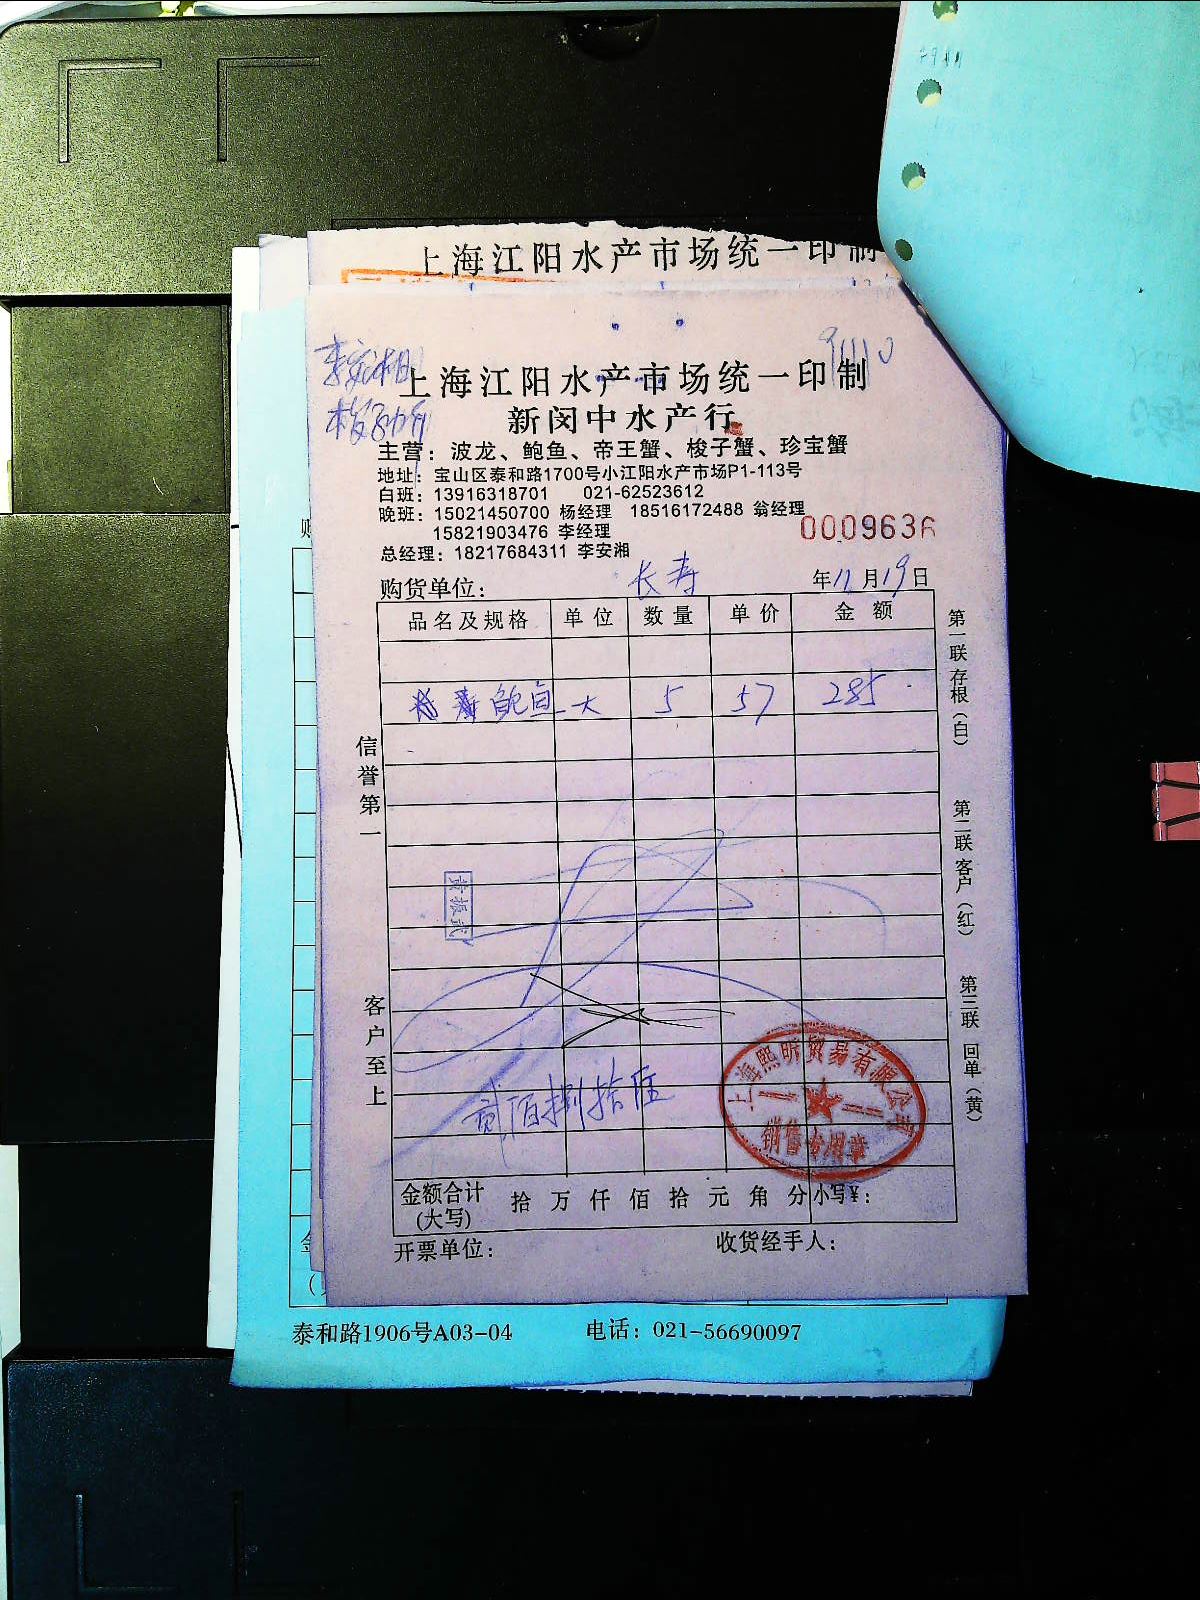 上海江阳水产市场统一印制
李安湘
上海江阳水产市场统一印制
新闵中水产行
主营：波龙、鲍鱼、帝王蟹、梭子蟹、珍宝蟹
地址：宝山区泰和路1700号小江阳水产市场P1-113号
白班：13916318701 021-62523612
晚班：15021450700 杨经理 18516172488 翁经理
15821903476 李经理
总经理：18217684311 李安湘
0009636
购货单位： 长寿 年11月19日
品名及规格 单位 数量 单价 金额
鲍鱼 大 5 57 285
信誉第一
客户至上
贰佰捌拾伍
上海熙昕贸易有限公司
销售专用章
金额合计 拾 万 仟 佰 拾 元 角 分 小写¥：
(大写)
开票单位： 收货经手人：
第一联 存根（白）
第二联 客户（红）
第三联 回单（黄）
泰和路1906号A03-04 电话：021-56690097